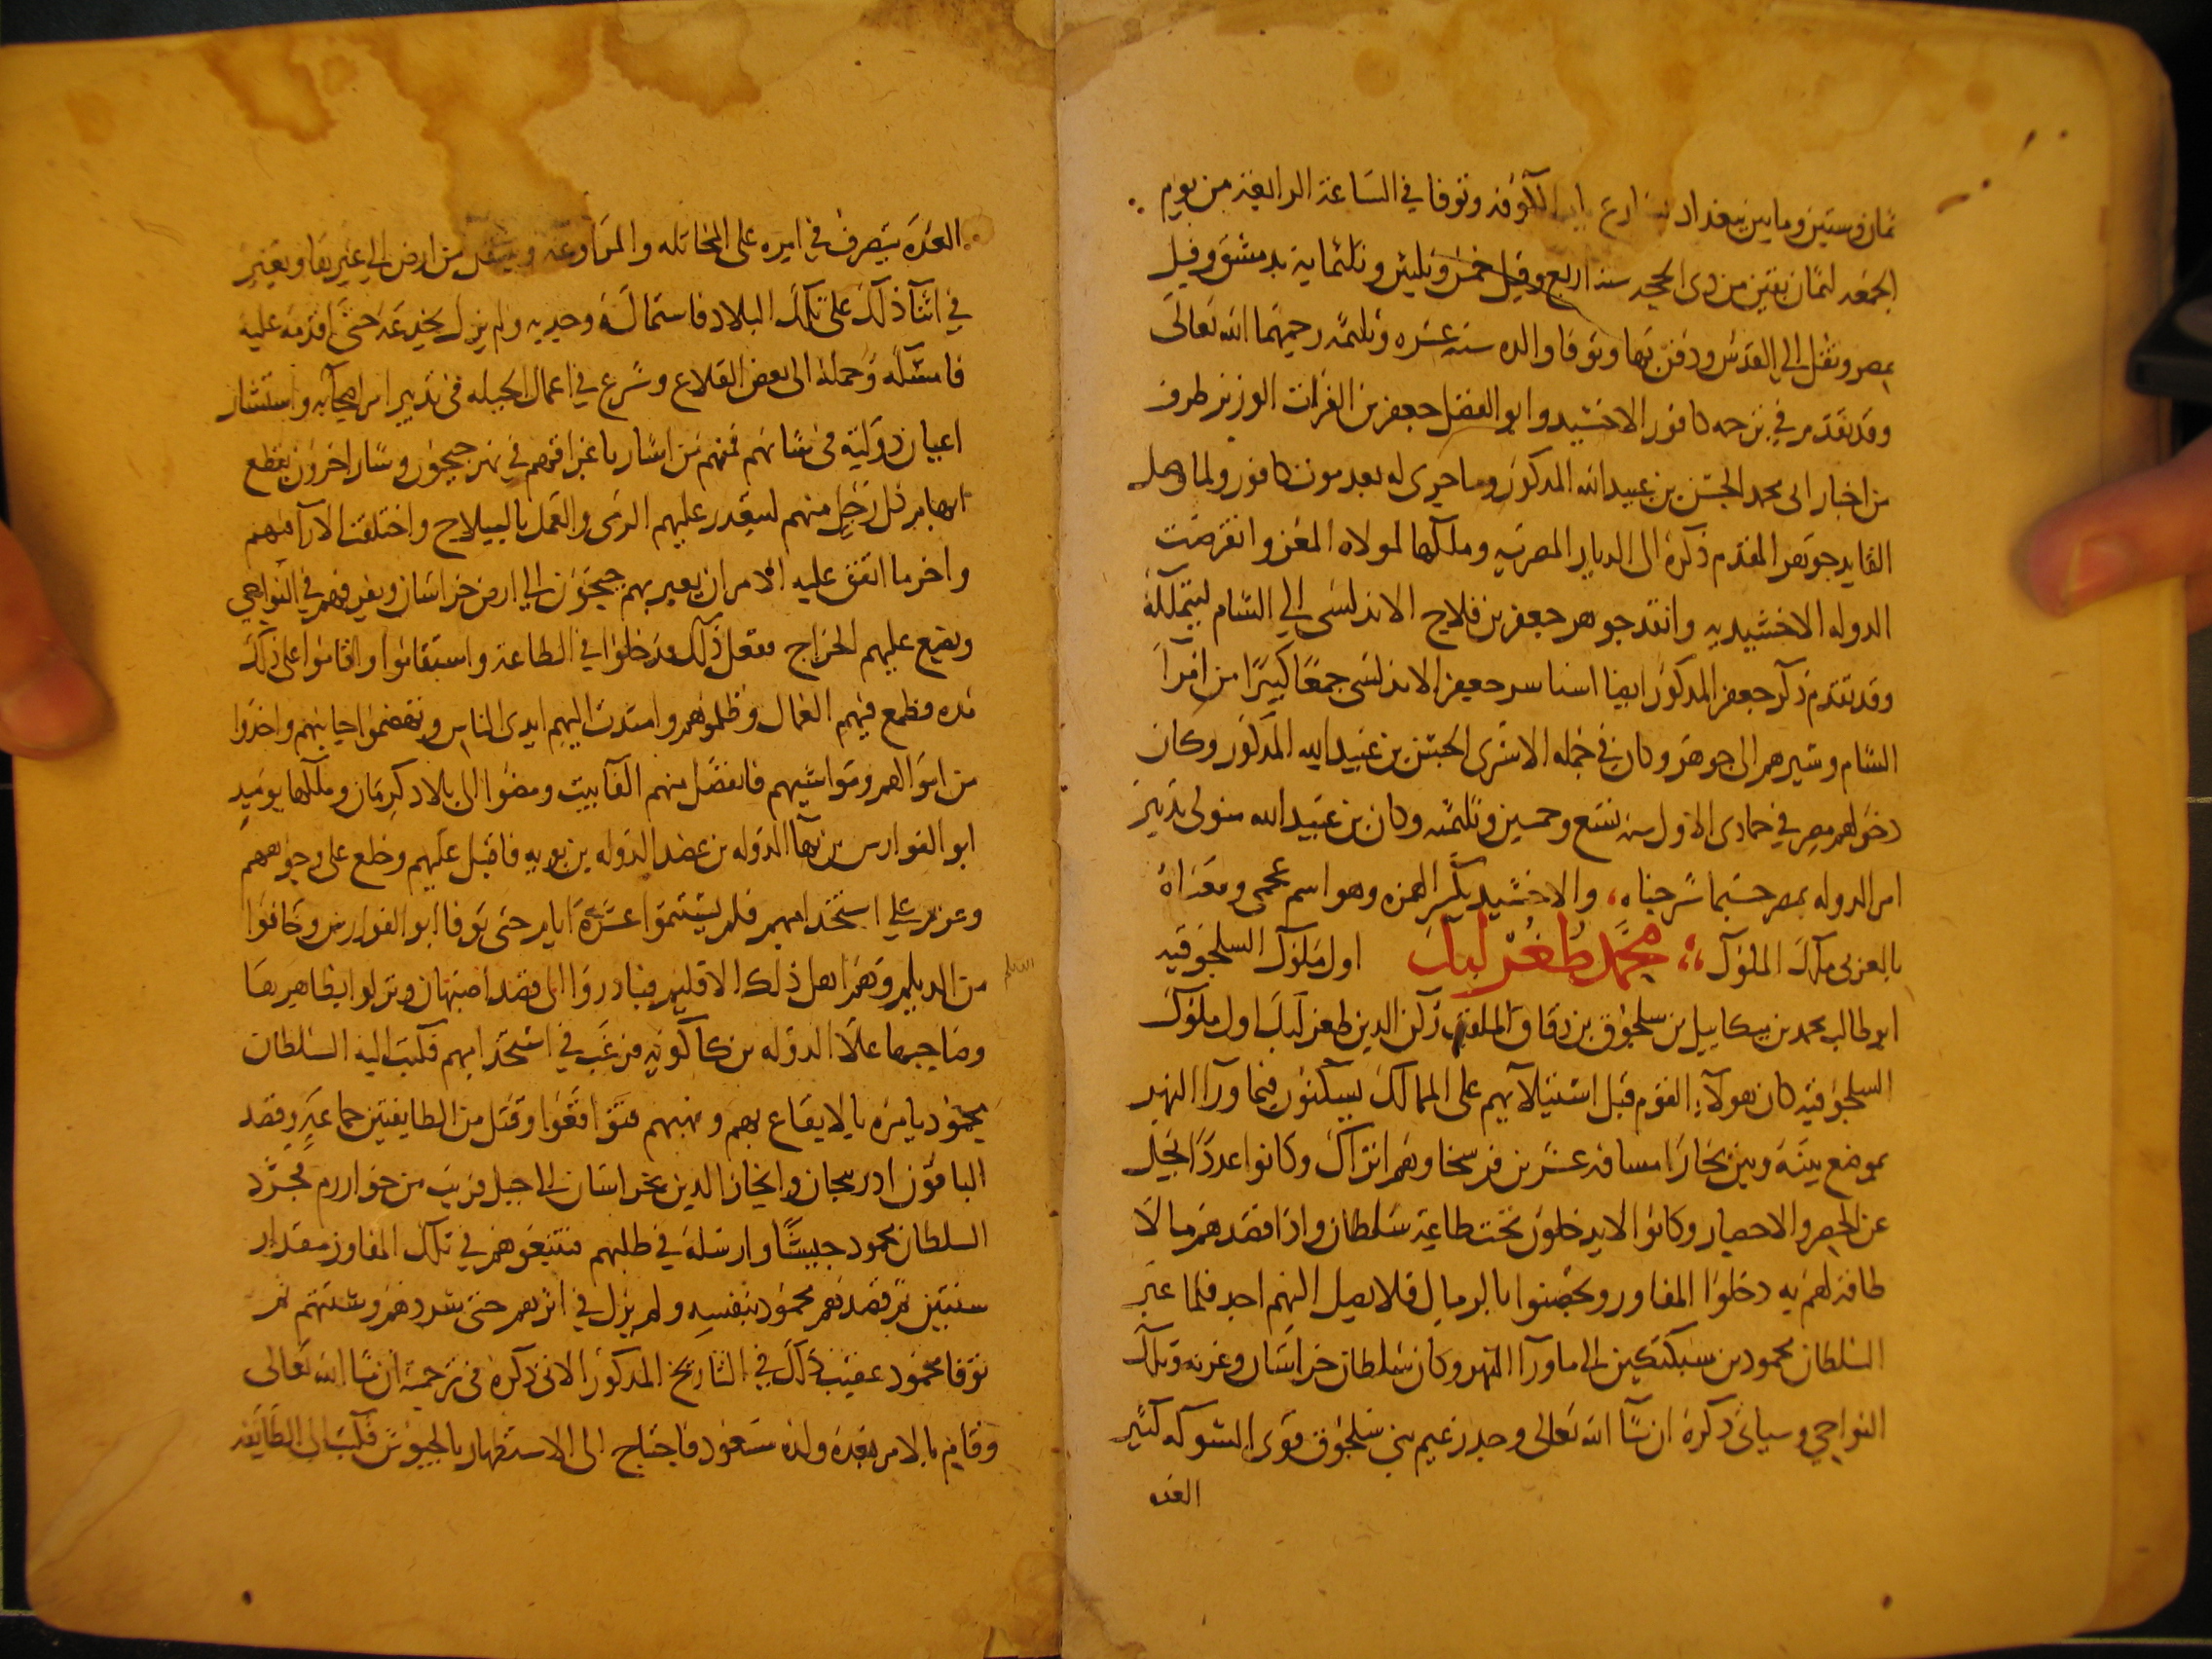 ثمان وستين ومايتين ببغداد بشارع باب الكوفه وتوفا في الساعة الرابعة من يوم
الجمعه لثمان بقين من ذي الحجه سنه اربع وقيل خمس وثلثين وثلثماية بدمشق وقيل
بمصر ونقل الي القدس ودفن بها وتوفا والده سنه عشره وثلثمه رحمهما الله تعالى
وقد تقدم في ترجمه كافور الاخشيد وابو الفضل جعفر بن الفرات الوزير طرف
من اخبار ابى محمد الحسن بن عبيد الله المذكور وما جرى له بعد موت كافور ولما وصل
القايد جوهر المقدم ذكره الى الديار المصريه وملكها لمولاه المعز وانقرضت
الدوله الاخشيديه وانفذ جوهر جعفر بن فلاح الاندلسى الي الشام ليتملكه
وقد تقدم ذكر جعفر المذكور ايضا اسر جعفر الاندلسى جمعًا كبيرًا من امرآ
الشام وسيرهم الى جوهر وكان في جمله الاسرى الحسن بن عبيد الله المذكور وكان
دخولهم مصر في جمادى الاول سنه تسع وخمسين وثلثمئه وكان بن عبيد الله متولى تدبير
امر الدوله بمصر حسبما شرحناه، والاخشيد بكسر الهمزه وهو اسم عجمى ومعناه
بالعربى ملك الملوك ؛؛ محمد طغرلبك اول ملوك السلجوقيه
ابو طالب محمد بن ميكاييل بن سلجوق بن دقاق الملقب ركن الدين طغرلبك اول ملوك
السلجوقيه كان هولآء القوم قبل استيلآيهم على الممالك يسكنون فيما ورآ النهر
بموضع بينه وبين بخارا مسافه عشرين فرسخا وهم اتراك وكانوا عددًا يجل
عن الحصر والاحصار وكانوا لا يدخلون تحت طاعة سلطان واذا قصدهم من لا
طاقة لهم به دخلوا المفاوز وتحصنوا بالرمال فلا يصل اليهم احد فلما عبر
السلطان محمود بن سبكتكين الى ماورآ النهر وكان سلطان خراسان وغزنه وتلك
النواحي وسياتى ذكره ان شآ الله تعالى وجد زعيم بنى سلجوق قوى الشوكه كثير
العده
العدة يتصرف في امره على المخاتله والمراوغه وينتقل من ارض الي غيرها ويغير
في اثنآ ذلك على تلك البلاد فاستماله وجذبه ولم يزل يخدعه حتى اقدمه عليه
فامسكه وحمله الى بعض القلاع وشرع في اعمال الحيله فى تدبير امر اصحابه واستشار
اعيان دولته فى شانهم فمنهم من اشار باغراقهم في نهر جيحون واشار اخرون بقطع
ابهام كل رجل منهم ليتعذر عليهم الرمى والعمل بالسلاح واختلفت الارآ منهم
واخر ما اتفق عليه الامر ان يعبر بهم جيحون الي ارض خراسان ويفرقهم في النواحي
ويضع عليهم الخراج ففعل ذلك فدخلوا في الطاعة واستقاموا واقاموا على ذلك
مده فطمع فيهم العمال وظلموهم وامتدت اليهم ايدى الناس وتهضموا جانبهم واخذوا
من اموالهم ومواشيهم فانفصل منهم الفا بيت ومضوا الى بلاد كرمان وملكها يوميد
ابو الفوارس بن بهآ الدوله بن عضد الدوله بن بويه فاقبل عليهم وخلع على وجوههم
وعزم على استخدامهم فلم يستتموا عشرة ايام حتى توفا ابو الفوارس وخافوا
من الديلم وهم اهل ذلك الاقليم فبادروا الى قصد اصبهان ونزلوا بظاهرها
وصاحبها علآ الدوله بن كاكويه فرغب في استخدامهم فكتب اليه السلطان
محمود يامره بالايقاع بهم ونهبهم فتواقعوا وقتل من الطايفتين جماعة وقصد
الباقون ادربيجان وانحاز الذين بخراسان الى جبل قريب من خوارزم فجرد
السلطان محمود جيشًا وارسله في طلبهم فتتبعوهم في تلك المفاوز مقدار
سنتين ثم قصدهم محمود بنفسه ولم يزل في اثرهم حتى شردهم وشتتهم ثم
توفا محمود عقيب ذلك في التاريخ المذكور الاتى ذكره فى ترجمته ان شآ الله تعالى
وقام بالامر بعده ولده مسعود فاحتاج الى الاستظهار بالجيوش فكتب الى الطايفه